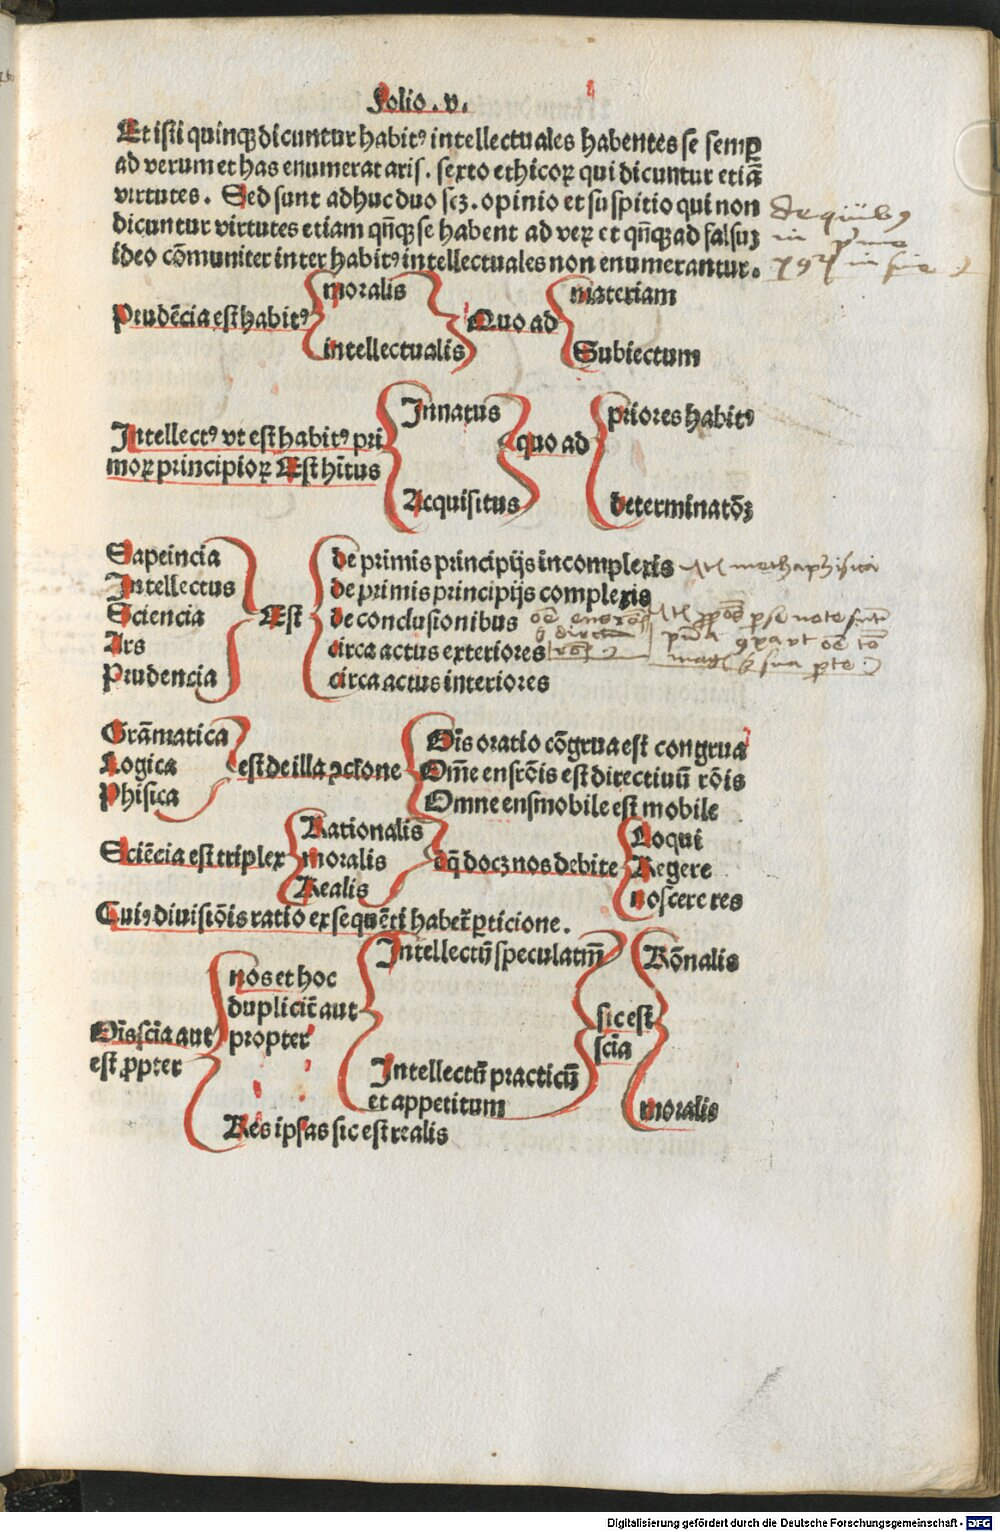 Folio .v.
Et isti quinqꝫ dicuntur habitꝰ intellectuales habentes se semꝑ
ad verum et has enumerat aris. sexto ethicoꝝ qui dicuntur etiā
virtutes. Sed sunt adhuc duo scꝫ. opinio et suspitio qui non
dicuntur virtutes etiam qn̄qꝫ se habent ad veꝝ et qn̄qꝫ ad falsuꝫ
ideo cōmuniter inter habitꝰ intellectuales non enumerantur.
Prudēcia est habitꝰ
moralis
intellectualis
Quo ad
materiam
Subiectum
Intellectꝰ vt est habitꝰ pri
moꝝ principioꝝ Est hītus
Innatus
Acquisitus
quo ad
priores habitꝰ
determinatōꝫ
Sapeincia
Intellectus
Sciencia
Ars
Prudencia
Est
de primis principijs incomplexis
de primis principijs complexis
de conclusionibus
circa actus exteriores
circa actus interiores
Grāmatica
Logica
Phisica
est de illa ↄctone
Oīs oratio cōgrua est congrua
Om̄e ens rōis est directiuū rōis
Omne ens mobile est mobile
Sciēcia est triplex
Rationalis
moralis
Realis
docꝫ nos debite
Loqui
Regere
noscere res
Cuiꝰ diuisiōis ratio ex sequēti habet̄ ꝑticione.
Oīs scīa aut
est ꝓpter
nos et hoc
duplicit̄ aut
propter
Res ipsas sic est realis
Intellectū speculatiū
Intellectū practicū
et appetitum
sic est
scīa
Rōnalis
moralis
Digitalisierung gefördert durch die Deutsche Forschungsgemeinschaft - DFG